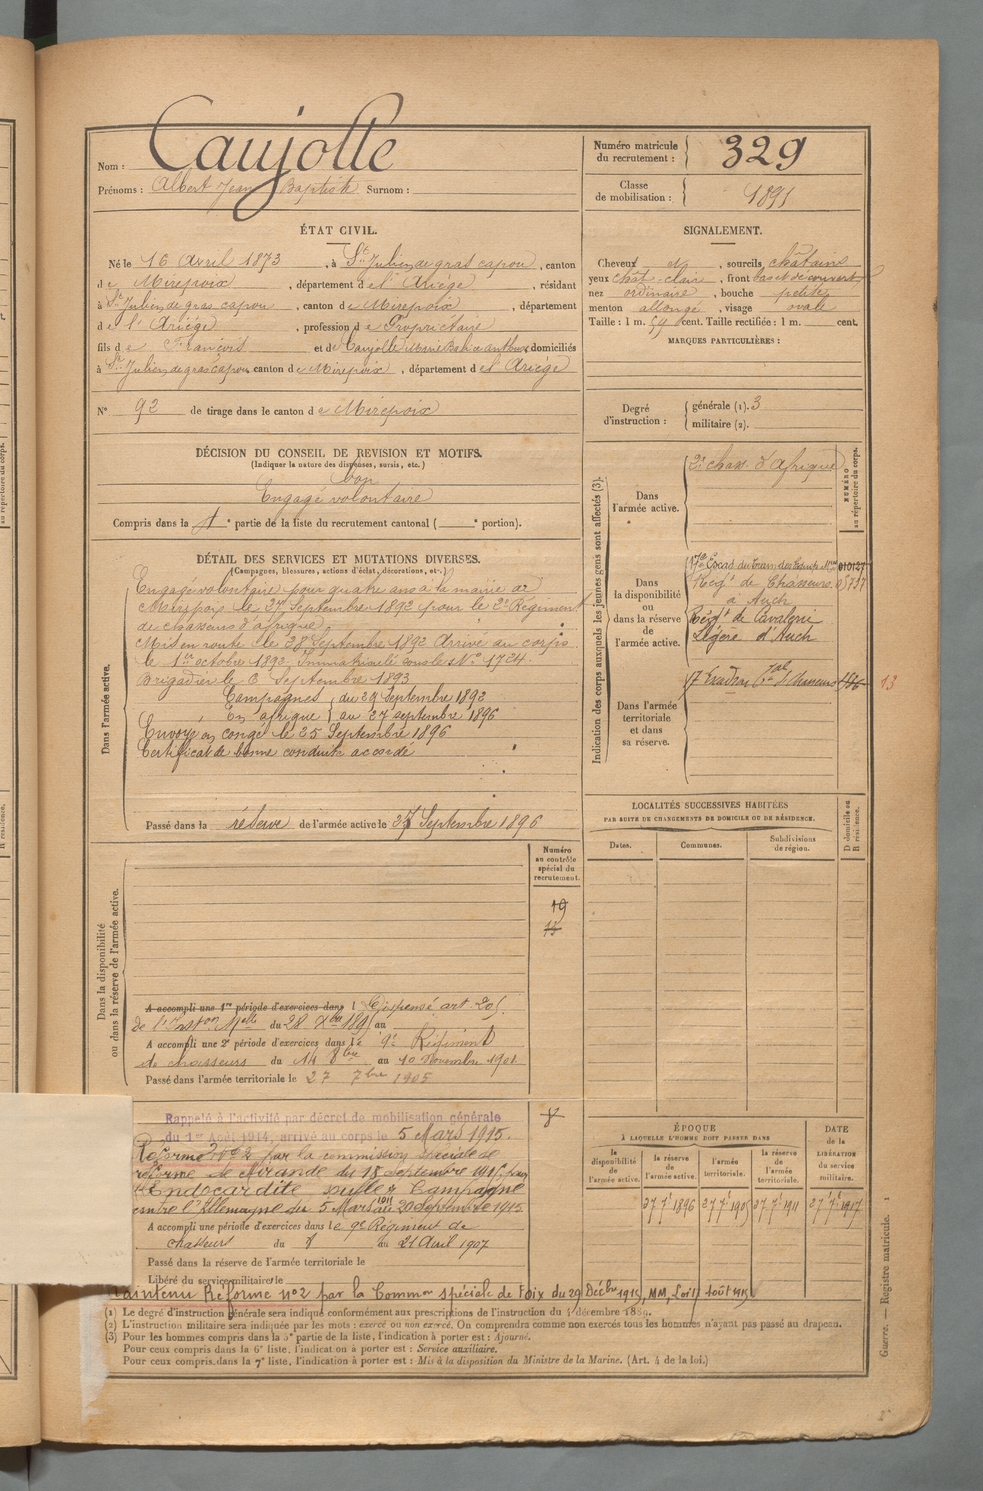 Nom : Caujolle
Prénoms : Albert Jean Baptiste Surnom :
Numéro matricule du recrutement : 329
Classe de mobilisation : 1891
ÉTAT CIVIL.
Né le 16 Avril 1873, à St Julien de gras capou, canton
de Mirepoix, département de l'Ariège, résidant
à St Julien de gras capou, canton de Mirepoix, département
de l'Ariège, profession de Propriétaire
fils de François et de Caujolle Marie domiciliés
à St Julien de gras capou, canton de Mirepoix, département de l'Ariège
N° 92 de tirage dans le canton de Mirepoix
SIGNALEMENT.
Cheveux et, sourcils châtains
yeux chât. clair, front bas et découvert
nez ordinaire, bouche petite
menton allongé, visage ovale
Taille : 1 m. 59 cent. Taille rectifiée : 1 m. cent.
MARQUES PARTICULIÈRES :
Degré d'instruction : générale (1). 3
militaire (2).
DÉCISION DU CONSEIL DE REVISION ET MOTIFS.
(Indiquer la nature des dispenses, sursis, etc.)
bon
Engagé volontaire
Compris dans la 1e partie de la liste du recrutement cantonal ( e portion).
DÉTAIL DES SERVICES ET MUTATIONS DIVERSES.
(Campagnes, blessures, actions d'éclat, décorations, etc.)
Dans l'armée active.
Engagé volontaire pour quatre ans à la mairie de
Mirepoix le 27 Septembre 1892 pour le 2e Régiment
de chasseurs d'afrique.
Mis en route le 28 Septembre 1892 Arrivé au corps
le 1er octobre 1892 Immatriculé sous le N° 1724.
Brigadier le Septembre 1893
Campagnes du 29 Septembre 1892
En afrique au 27 septembre 1896
Envoyé en congé le 25 Septembre 1896
Certificat de bonne conduite accordé
Passé dans la réserve de l'armée active le 27 Septembre 1896
Indication des corps auxquels les jeunes gens sont affectés (3).
NUMÉRO au répertoire du corps.
Dans l'armée active.
2e chass. d'Afrique
Dans la disponibilité ou dans la réserve de l'armée active.
17e Escad. du train des Equip. Mres 010127
Regt de Chasseurs 05737
à Auch
Régt de Cavalerie
Légère d'Auch
Dans l'armée territoriale et dans sa réserve.
17 Escadron tal de Chasseurs 13
LOCALITÉS SUCCESSIVES HABITÉES
PAR SUITE DE CHANGEMENTS DE DOMICILE OU DE RÉSIDENCE.
Dates. Communes. Subdivisions de région. D domicile ou R résidence.
Dans la disponibilité ou dans la réserve de l'armée active.
Numéro au contrôle spécial du recrutement.
19
A accompli une 1re période d'exercices dans l Dispensé art. 20
de l'Inston Melle du 28 Xbre 1895 au
A accompli une 2e période d'exercices dans le 9e Régiment
de chasseurs du 14 8bre au 10 Novembre 1901
Passé dans l'armée territoriale le 27 7bre 1905
Rappelé à l'activité par décret de mobilisation générale
du 1er Août 1914, arrivé au corps le 5 Mars 1915.
Réformé n° 2 par la commission spéciale de
réforme de Mirande du 18 septembre 1915 pour
"Endocardite Campagne
contre l'Allemagne du 5 Mars 1915 au 20 Septembre 1915
A accompli une période d'exercices dans le 9e Régiment de
chasseurs du 8 au 21 Avril 1907
Passé dans la réserve de l'armée territoriale le
Libéré du service militaire le
Maintenu Réformé n° 2 par la Common spéciale de Foix du 29 Décbre 1915, MM, Loi 17 Août 1915
ÉPOQUE
À LAQUELLE L'HOMME DOIT PASSER DANS
la disponibilité de l'armée active. la réserve de l'armée active. l'armée territoriale. la réserve de l'armée territoriale.
DATE de la LIBÉRATION du service militaire.
27 7bre 1896 27 7bre 1905 27 7bre 1911 27 7bre 1917
(1) Le degré d'instruction générale sera indiqué conformément aux prescriptions de l'instruction du 4 décembre 1889.
(2) L'instruction militaire sera indiquée par les mots : exercé ou non exercé. On comprendra comme non exercés tous les hommes n'ayant pas passé au drapeau.
(3) Pour les hommes compris dans la 5e partie de la liste, l'indication à porter est : Ajourné.
Pour ceux compris dans la 6e liste, l'indication à porter est : Service auxiliaire.
Pour ceux compris dans la 7e liste, l'indication à porter est : Mis à la disposition du Ministre de la Marine. (Art. 4 de la loi.)
Guerre. — Registre matricule. 1